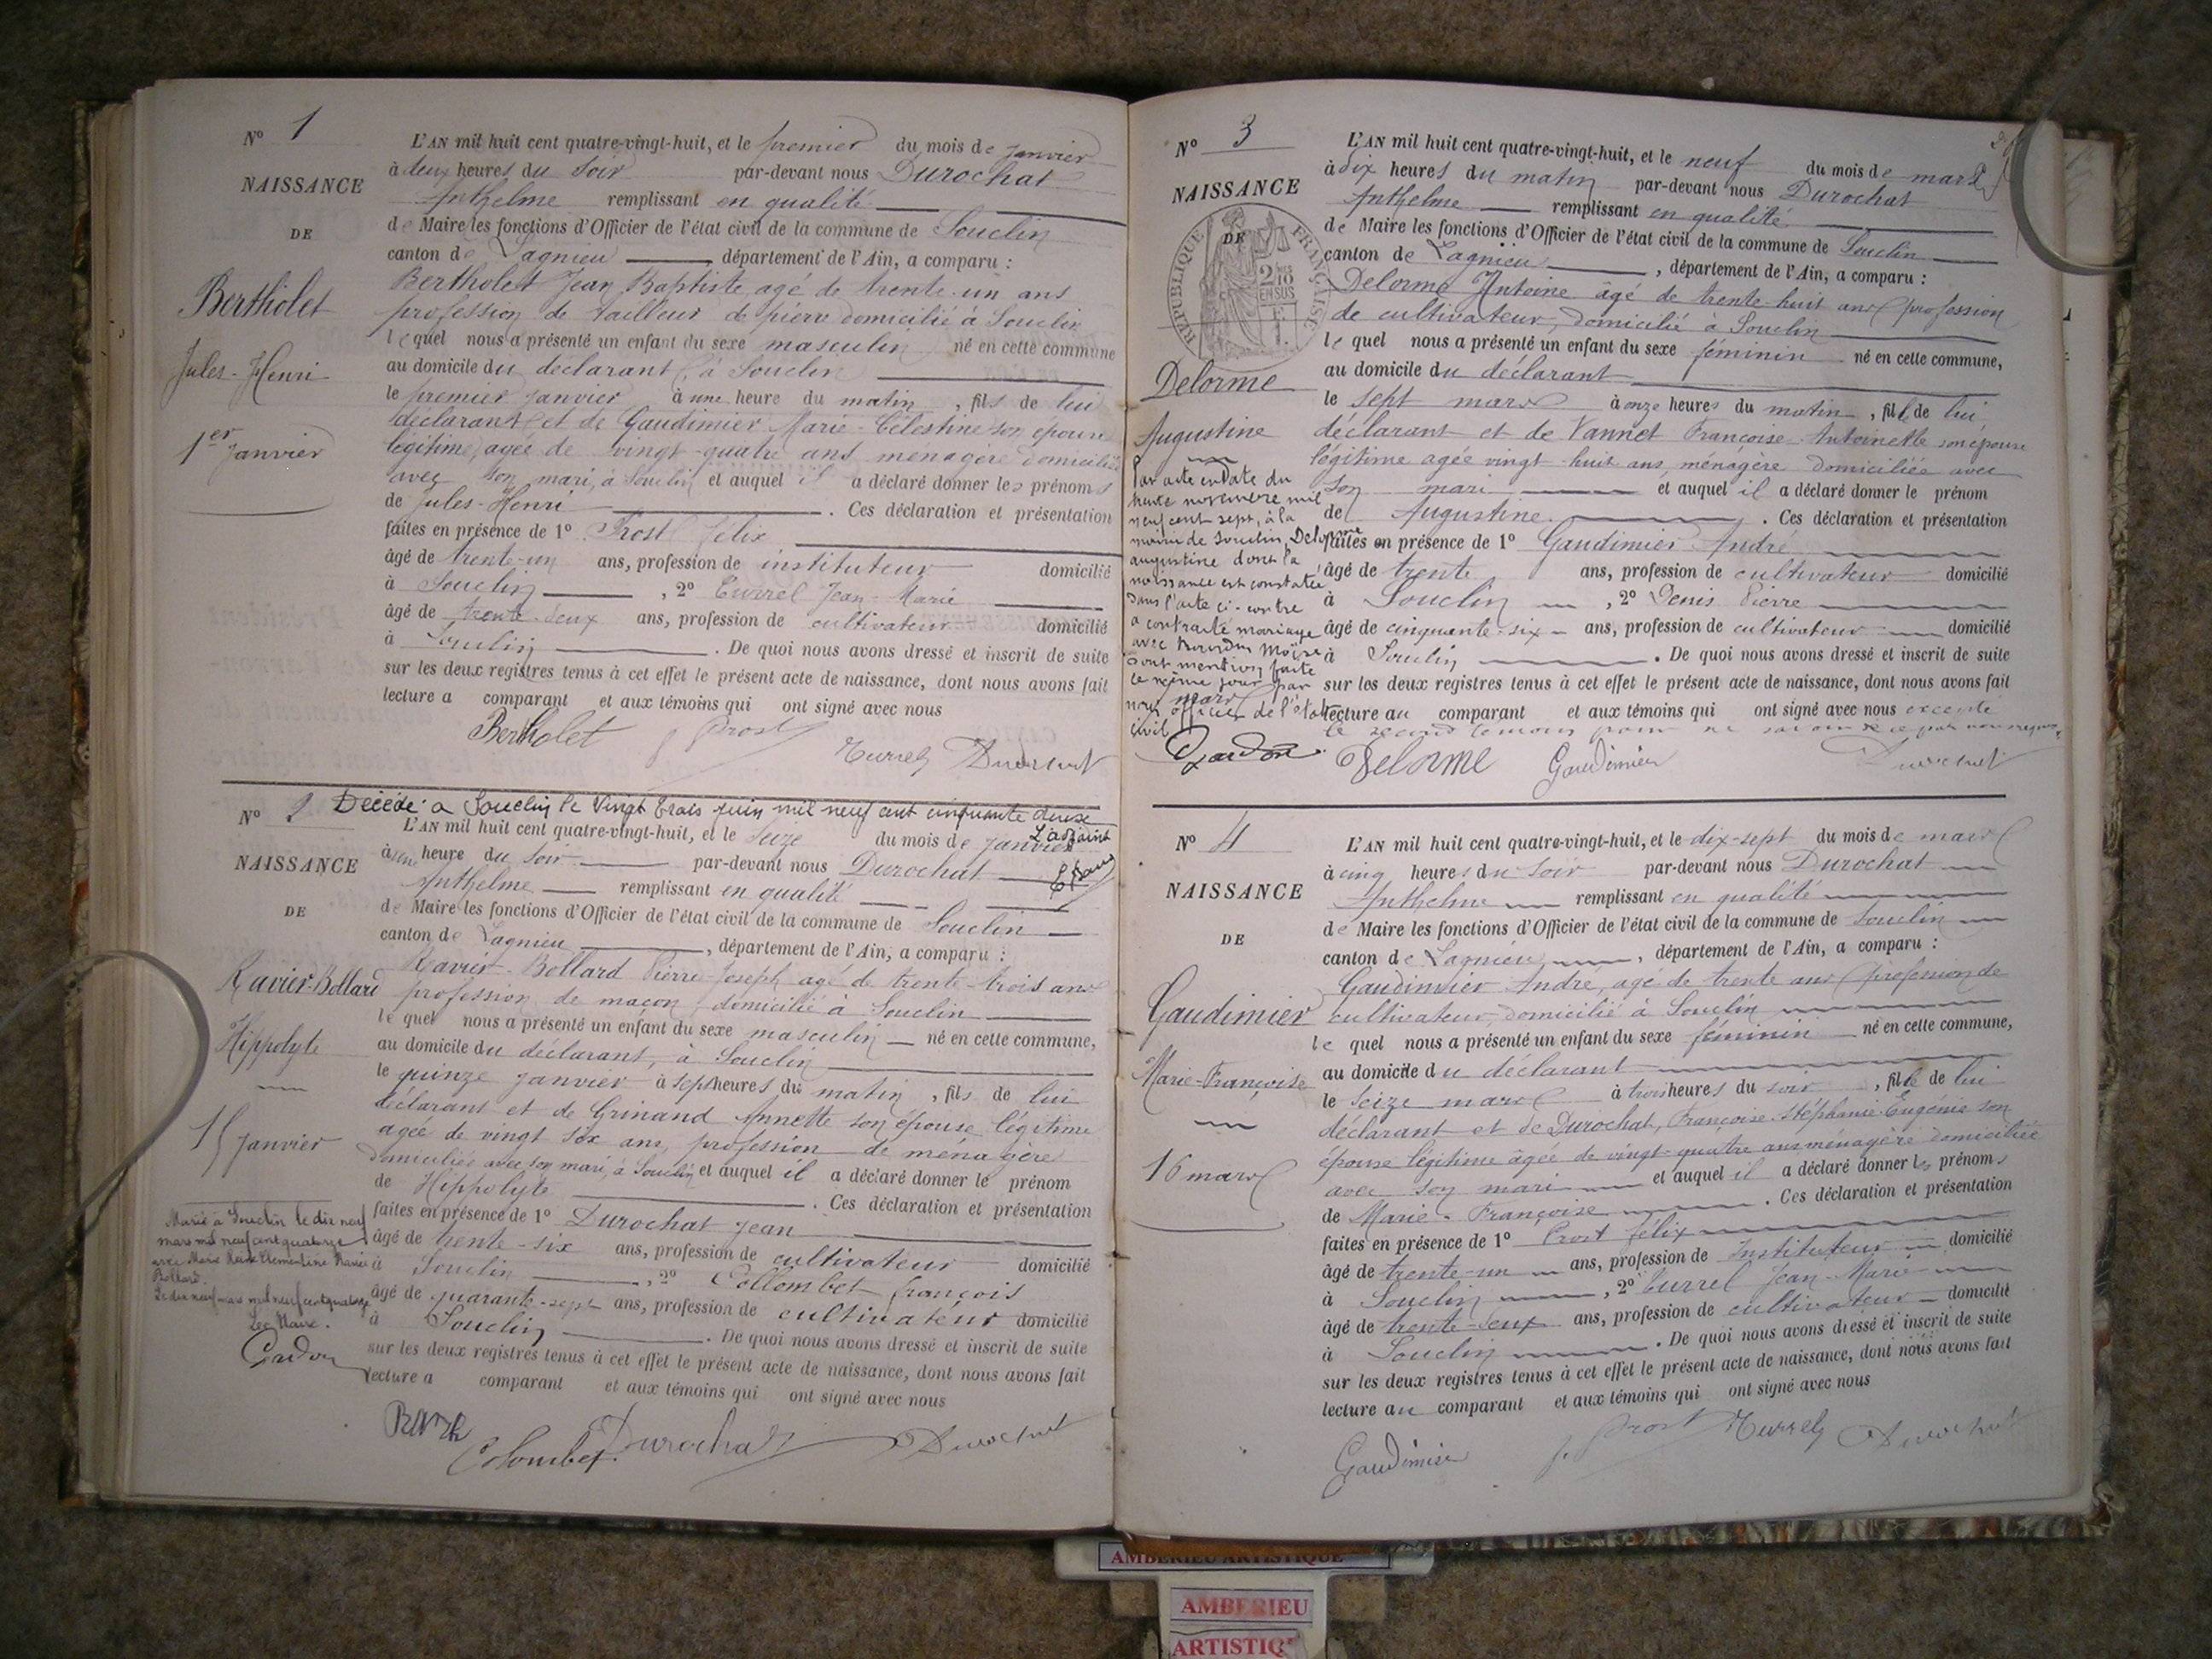 N° 1
NAISSANCE
DE
Bertholet
Jules-Henri
1er Janvier
L'AN mil huit cent quatre-vingt-huit, et le premier du mois de janvier
à deux heures du soir par-devant nous Durochat
Anthelme remplissant en qualité
de Maire les fonctions d'Officier de l'état civil de la commune de Souclin
canton de Lagnieu, département de l'Ain, a comparu :
Bertholet Jean Baptiste agé de trente-un ans
profession de tailleur de pierre domicilié à Souclin
lequel nous a présenté un enfant du sexe masculin né en cette commune
au domicile du déclarant, à Souclin
le premier janvier à une heure du matin, fils de lui
déclarant et de Gaudimier Marie-Célestine son épouse
légitime, agée de vingt-quatre ans ménagère domiciliée
avec son mari, à Souclin et auquel il a déclaré donner les prénoms
de Jules-Henri. Ces déclaration et présentation
faites en présence de 1° Prost félix
âgé de trente-un ans, profession de instituteur domicilié
à Souclin, 2° Turrel Jean-Marie
âgé de trente-deux ans, profession de cultivateur domicilié
à Souclin. De quoi nous avons dressé et inscrit de suite
sur les deux registres tenus à cet effet le présent acte de naissance, dont nous avons fait
lecture a comparant et aux témoins qui ont signé avec nous
Bertholet f Prost
Turrel Durochat
N° 2 Décédé à Souclin le Vingt trois juin mil neuf cent cinquante deux
L'adjoint
NAISSANCE
DE
Ravier-Bollard
Hippolyte
15 janvier
Marié à Souclin le dix neuf
mars mil neuf cent quatorze
avec Marie Clémentine Ravier
Bollard.
Le dix neuf mars mil neuf cent quatorze
Le Maire.
L'AN mil huit cent quatre-vingt-huit, et le seize du mois de janvier
à une heure du soir par-devant nous Durochat
Anthelme remplissant en qualité
de Maire les fonctions d'Officier de l'état civil de la commune de Souclin
canton de Lagnieu, département de l'Ain, a comparu :
Ravier-Bollard Pierre-Joseph agé de trente-trois ans
profession de maçon, domicilié à Souclin
lequel nous a présenté un enfant du sexe masculin né en cette commune,
au domicile du déclarant, à Souclin
le quinze janvier à sept heures du matin, fils de lui
déclarant et de Grinand Annette son épouse légitime
agée de vingt six ans, profession de ménagère
domiciliée avec son mari, à Souclin et auquel il a déclaré donner le prénom
de Hippolyte. Ces déclaration et présentation
faites en présence de 1° Durochat Jean
âgé de trente-six ans, profession de cultivateur domicilié
à Souclin, 2° Collombet françois
âgé de quarante-sept ans, profession de cultivateur domicilié
à Souclin. De quoi nous avons dressé et inscrit de suite
sur les deux registres tenus à cet effet le présent acte de naissance, dont nous avons fait
lecture a comparant et aux témoins qui ont signé avec nous
Colombet Durochat Durochat
N° 3
NAISSANCE
DE
RÉPUBLIQUE FRANÇAISE
Delorme
Augustine
Par acte en date du
trente novembre mil
neuf cent sept, à la
mairie de Souclin, Delorme
augustine dont la
naissance est constatée
dans l'acte ci-contre
a contracté mariage
avec Bourdin Moïse
dont mention faite
le même jour par
nous officier de l'état
civil
7 mars
L'AN mil huit cent quatre-vingt-huit, et le neuf du mois de mars
à dix heures du matin par-devant nous Durochat
Anthelme remplissant en qualité
de Maire les fonctions d'Officier de l'état civil de la commune de Souclin
canton de Lagnieu, département de l'Ain, a comparu :
Delorme Antoine âgé de trente-huit ans profession
de cultivateur, domicilié à Souclin
lequel nous a présenté un enfant du sexe féminin né en cette commune,
au domicile du déclarant
le sept mars à onze heures du matin, fille de lui
déclarant et de Vannet Françoise-Antoinette son épouse
légitime agée vingt-huit ans, ménagère domiciliée avec
son mari et auquel il a déclaré donner le prénom
de Augustine. Ces déclaration et présentation
faites en présence de 1° Gaudimier André
âgé de trente ans, profession de cultivateur domicilié
à Souclin, 2° Denis Pierre
âgé de cinquante-six ans, profession de cultivateur domicilié
à Souclin. De quoi nous avons dressé et inscrit de suite
sur les deux registres tenus à cet effet le présent acte de naissance, dont nous avons fait
lecture au comparant et aux témoins qui ont signé avec nous excepté
le second témoin pour ne savoir de ce par nous requis
Delorme Gaudimier Durochat
N° 4
NAISSANCE
DE
Gaudimier
Marie-Françoise
16 mars
L'AN mil huit cent quatre-vingt-huit, et le dix-sept du mois de mars
à cinq heures du soir par-devant nous Durochat
Anthelme remplissant en qualité
de Maire les fonctions d'Officier de l'état civil de la commune de Souclin
canton de Lagnieu, département de l'Ain, a comparu :
Gaudimier André, agé de trente ans profession de
cultivateur, domicilié à Souclin
lequel nous a présenté un enfant du sexe féminin né en cette commune,
au domicile du déclarant
le seize mars à trois heures du soir, fille de lui
déclarant et de Durochat, Françoise-Stéphanie-Eugénie son
épouse légitime âgée de vingt-quatre ans ménagère domiciliée
avec son mari et auquel il a déclaré donner les prénoms
de Marie-Françoise. Ces déclaration et présentation
faites en présence de 1° Prost félix
âgé de trente-un ans, profession de Instituteur domicilié
à Souclin, 2° Turrel Jean-Marie
âgé de trente-deux ans, profession de cultivateur domicilié
à Souclin. De quoi nous avons dressé et inscrit de suite
sur les deux registres tenus à cet effet le présent acte de naissance, dont nous avons fait
lecture au comparant et aux témoins qui ont signé avec nous
Gaudimier f. Prost Turrel Durochat
AMBERIEU ARTISTIQUE
AMBERIEU
ARTISTIQ